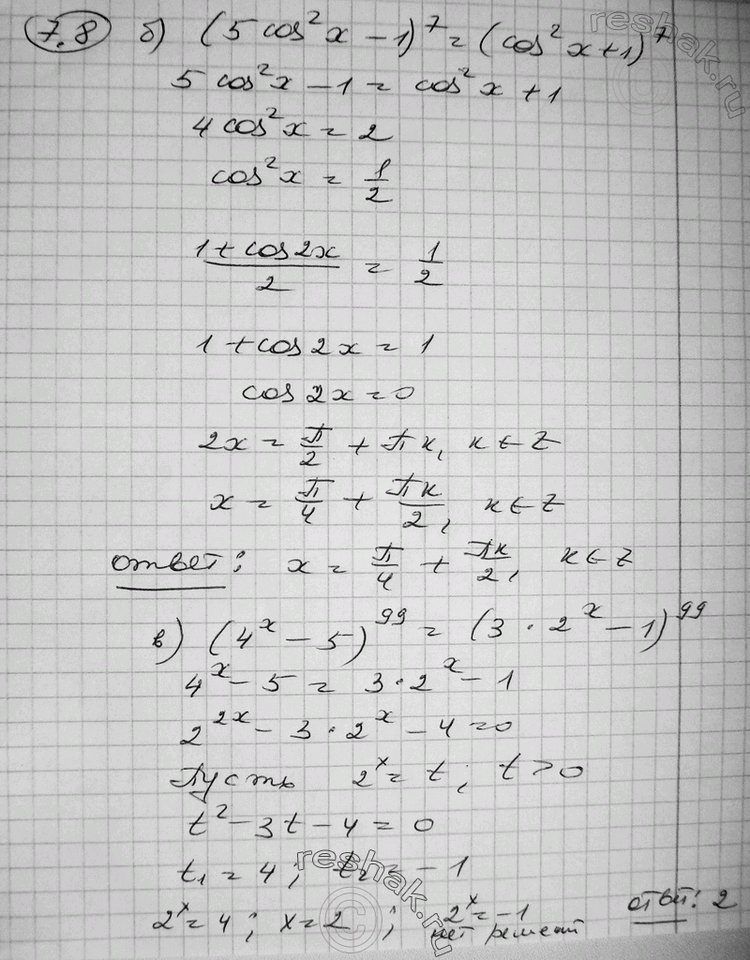 7.8 б) (5 cos²x - 1)⁷ = (cos²x + 1)⁷
5 cos²x - 1 = cos²x + 1
4 cos²x = 2
cos²x = 1/2
(1 + cos 2x)/2 = 1/2
1 + cos 2x = 1
cos 2x = 0
2x = π/2 + πk, k ∈ Z
x = π/4 + πk/2, k ∈ Z
ответ: x = π/4 + πk/2, k ∈ Z
в) (4ˣ - 5)⁹⁹ = (3 · 2ˣ - 1)⁹⁹
4ˣ - 5 = 3 · 2ˣ - 1
2²ˣ - 3 · 2ˣ - 4 = 0
Пусть 2ˣ = t; t > 0
t² - 3t - 4 = 0
t₁ = 4; t₂ = -1
2ˣ = 4; x = 2; 2ˣ = -1 ответ: 2
нет решений
reshak.ru
reshak.ru